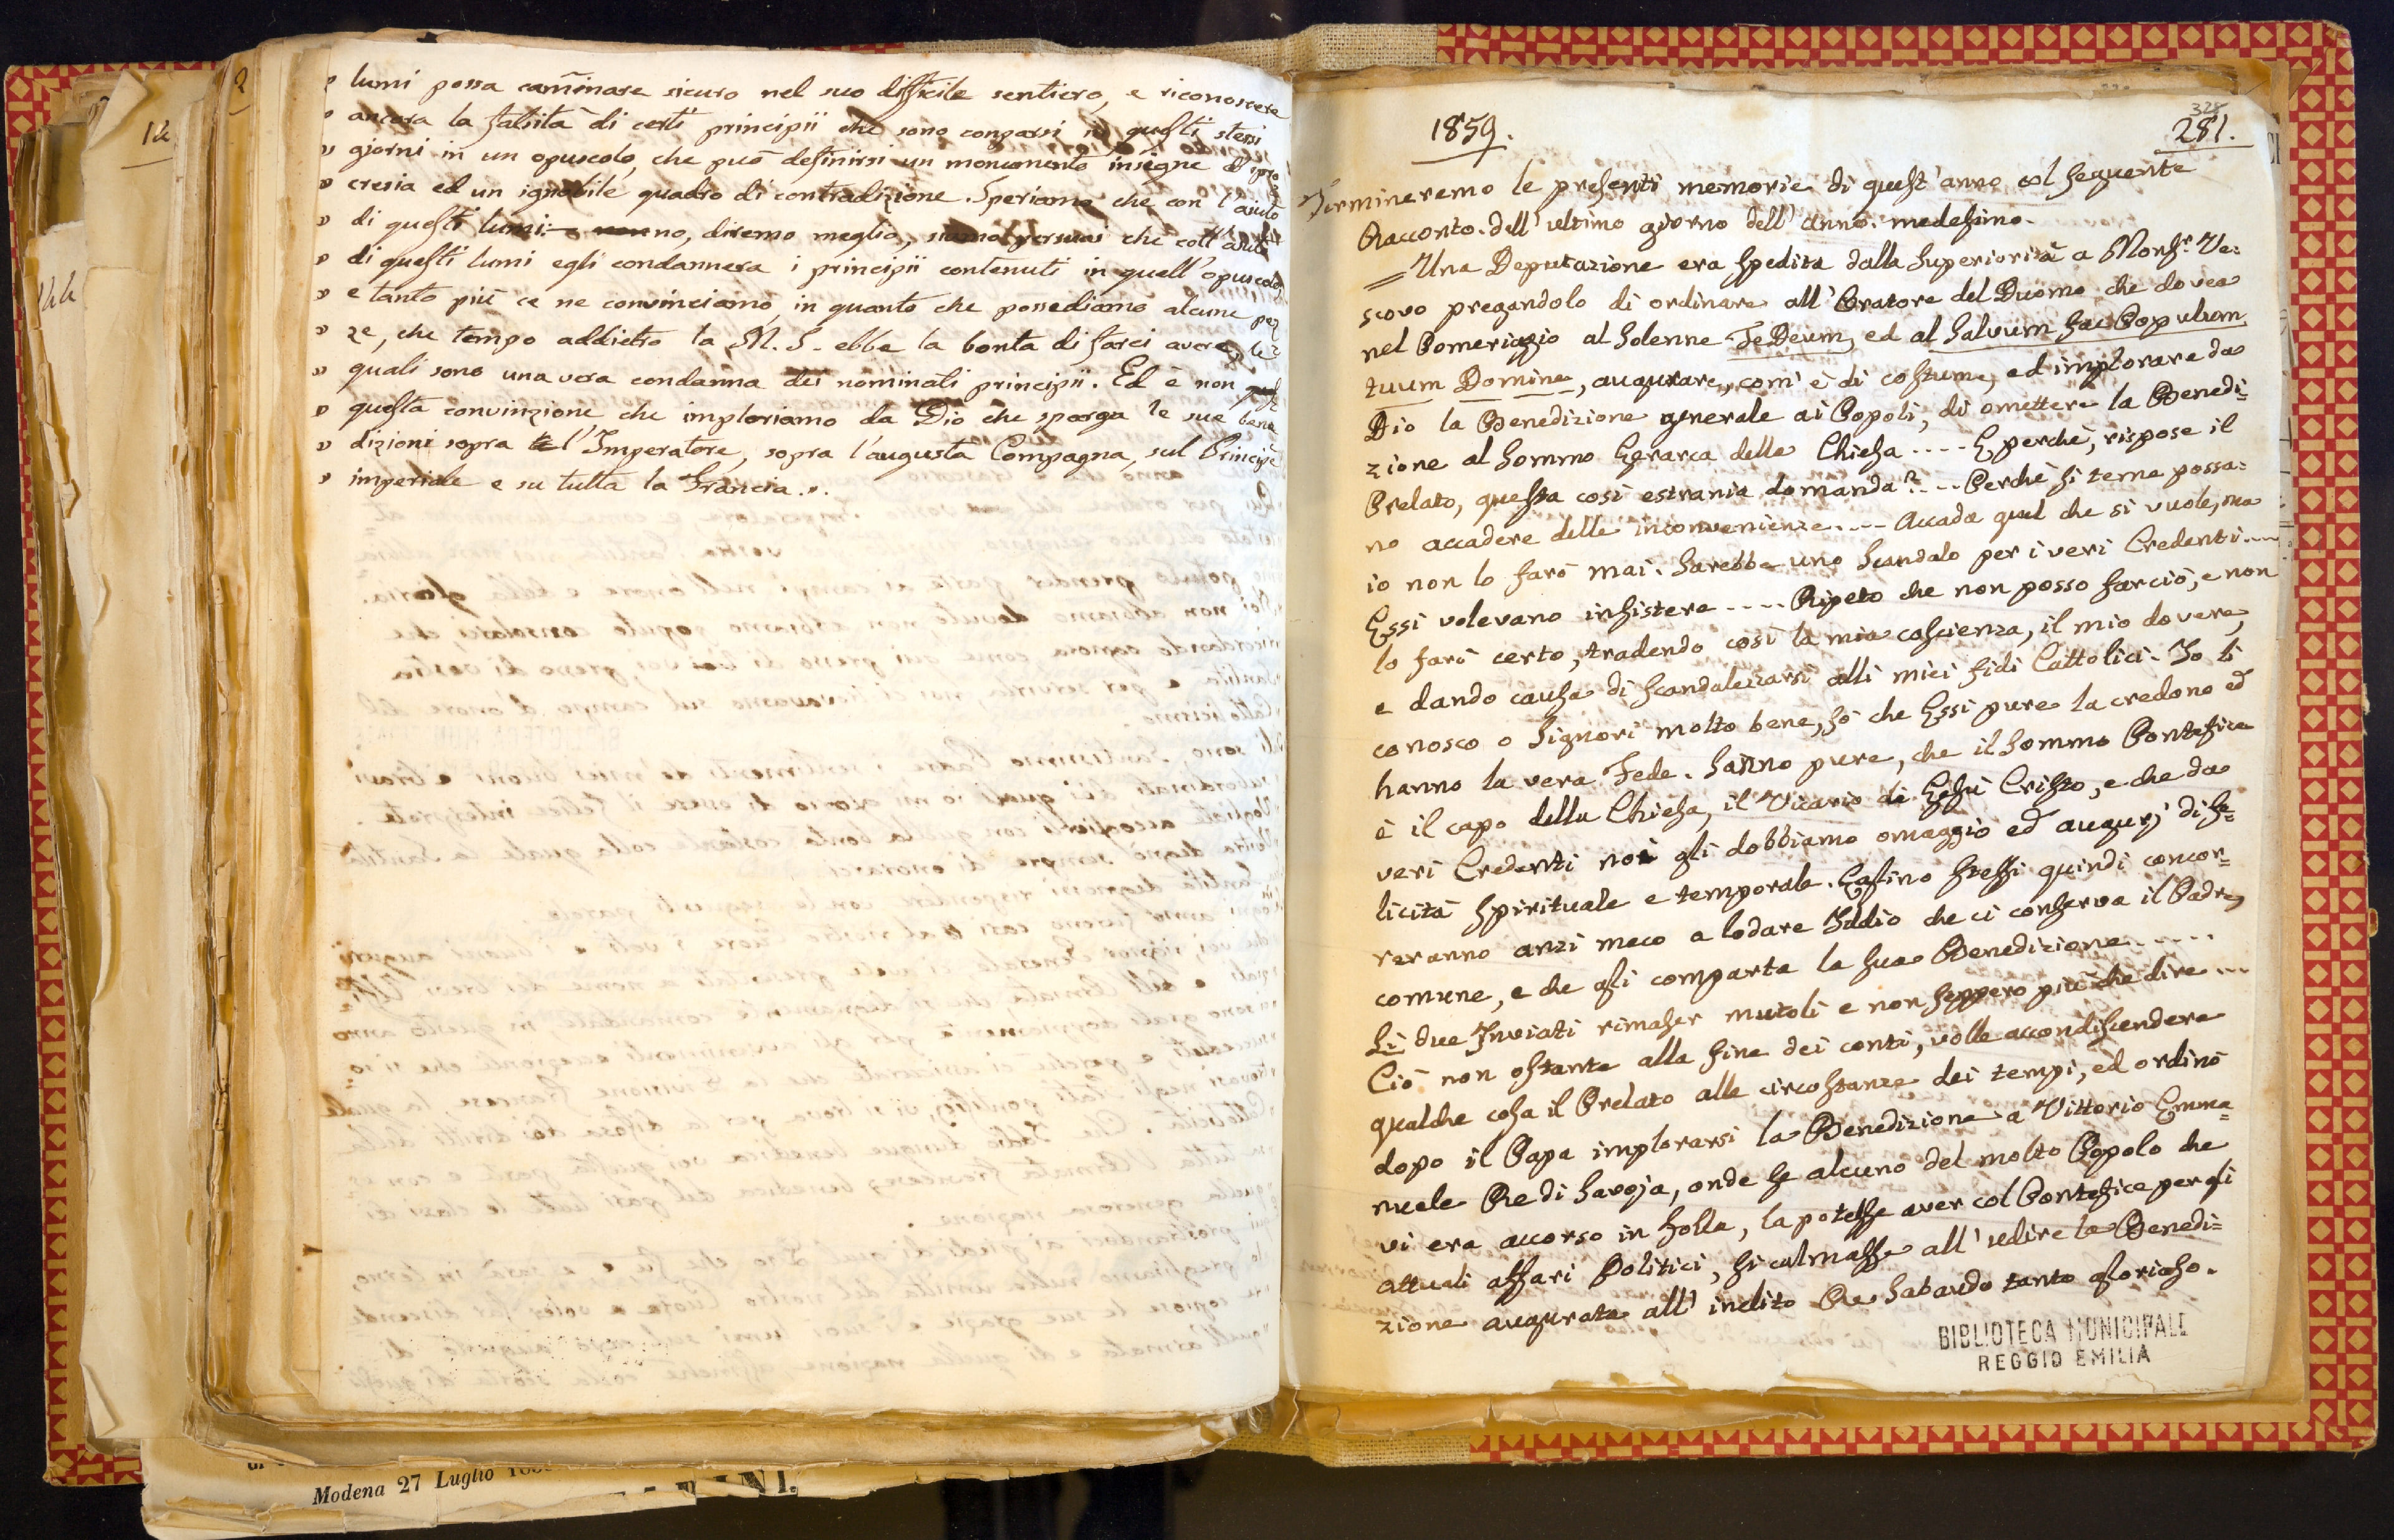 » lumi possa camminare sicuro nel suo difficile sentiero, e riconoscere
» ancora la falsità di certi principii che sono comparsi in questi stessi
» giorni in un opuscolo, che può definirsi un monumento insigne d'ipo
» cresia ed un ignobile quadro di contradizione. Speriamo che con l'aiuto
» di questi lumi no, diremo meglio, siamo persuasi che coll'aiuto
» di questi lumi egli condannera i principii contenuti in quell'opuscolo,
» e tanto più ce ne convinciamo, in quanto che possediamo alcune pez
» ze, che tempo addietro la M. S. ebbe la bonta di farci avere, le
» quali sono una vera condanna dei nominati principii. Ed è non
» questa convinzione che imploriamo da Dio che sparga le sue bene
» dizioni sopra l'Imperatore, sopra l'augusta Compagna, sul Principe
» imperiale e su tutta la Francia.».
Modena 27 Luglio
1859.
328
281.
Termineremo le presenti memorie di quest'anno col seguente
Racconto dell'ultimo giorno dell'anno medesimo.
= Una Deputazione era spedita dalla Superiorità a Monsr. Ve:
scovo pregandolo di ordinare all'Oratore del Duomo che dovea
nel Pomeriggio al Solenne TeDeum, ed al Salvum fac Populum
tuum Domine, augurare, com'è di costume, ed implorare da
Dio la Benedizione generale ai Popoli, di omettere la Benedi=
zione al Sommo Gerarca della Chiesa .... E perchè, rispose il
Prelato, questa così estrania domanda? ... Perchè si teme possa:
no accadere delle inconvenienze .... Accada quel che si vuole, ma
io non lo farò mai. Sarebbe uno Scandalo per i veri Credenti ....
Essi volevano insistere .... Ripeto che non posso farciò, e non
lo farò certo, tradendo così la mia coscienza, il mio dovere,
e dando causa di scandalezzarsi alli miei fidi Cattolici. Io li
conosco o Signori molto bene, sò che Essi pure la credono ed
hanno la vera Fede. Sanno pure, che il Sommo Pontefice
è il capo della Chiesa, il Vicario di Gesù Cristo, e che da
veri Credenti noi gli dobbiamo omaggio ed augurj di fe=
licità spirituale e temporale. Essino stessi quindi concor=
reranno anzi meco a lodare Iddio che ci conserva il Padre
comune, e che gli comparta la sua Benedizione .....
Li due Inviati rimaser mutoli e non seppero più che dire ...
Ciò non ostante alla fine dei conti, volle accondiscendere
qualche cosa il Prelato alle circostanze dei tempi, ed ordinò
dopo il Papa implorarsi la Benedizione a Vittorio Emma=
nuele Re di Savoja, onde se alcuno del molto Popolo che
vi era accorso in folla, la potesse aver col Pontefice per gli
attuali affari Politici, si calmasse all'udire la Benedi=
zione augurata all'inclito Re Sabaudo tanto glorioso.
BIBLIOTECA MUNICIPALE
REGGIO EMILIA